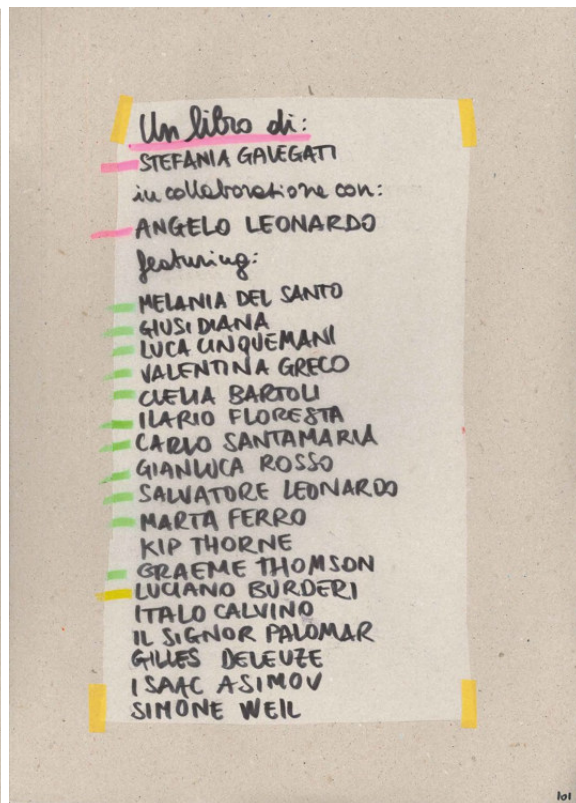 Un libro di:
STEFANIA GALEGATI
in collaborazione con:
ANGELO LEONARDO
featuring:
MELANIA DEL SANTO
GIUSI DIANA
LUCA CINQUEMANI
VALENTINA GRECO
CLELIA BARTOLI
ILARIO FLORESTA
CARLO SANTAMARIA
GIANLUCA ROSSO
SALVATORE LEONARDO
MARTA FERRO
KIP THORNE
GRAEME THOMSON
LUCIANO BURDERI
ITALO CALVINO
IL SIGNOR PALOMAR
GILLES DELEUZE
ISAAC ASIMOV
SIMONE WEIL
101